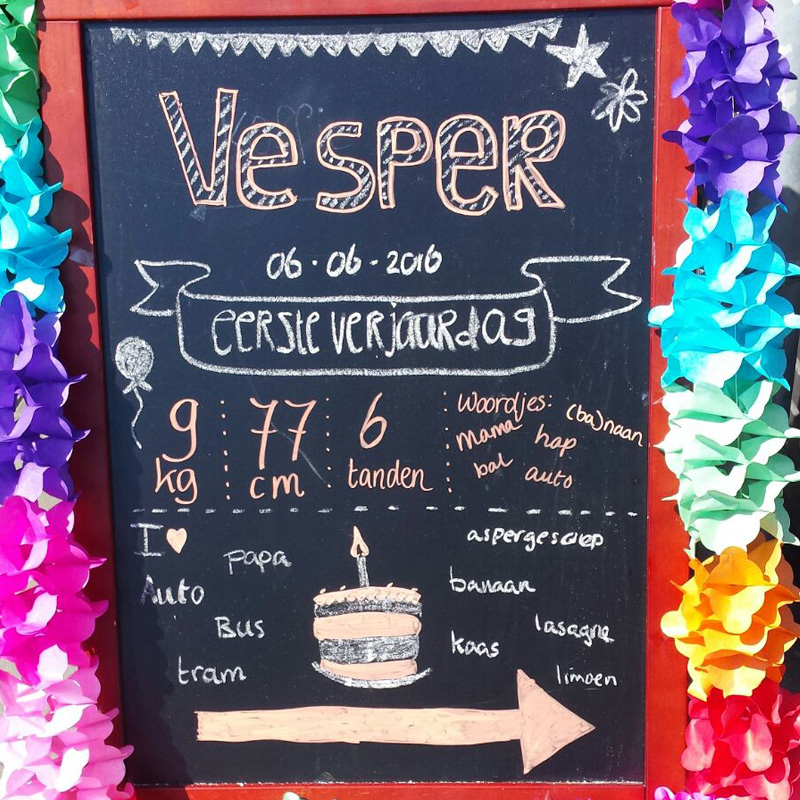 VesPeR
06·06-2016
eersteverjaardag
9 kg
77 cm
6 tanden
Woordjes: (ba)naan
mama hap
bal auto
I ♥
papa
Auto
Bus
tram
aspergesoep
banaan
lasagne
kaas
limoen